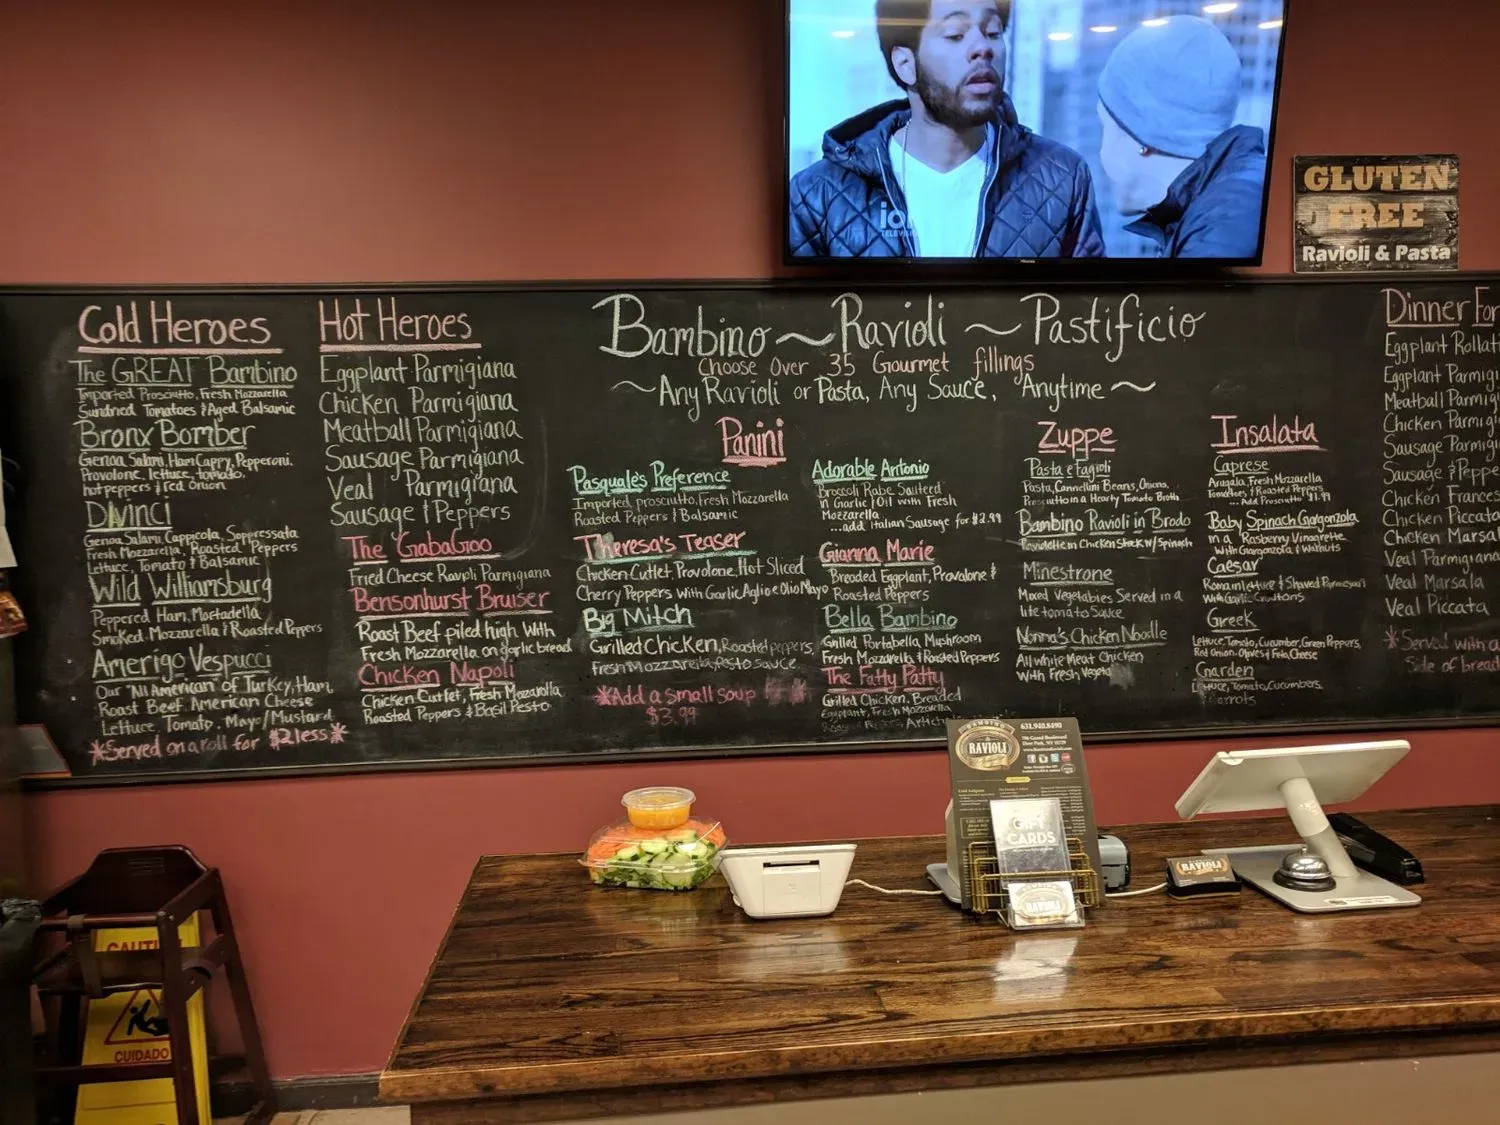 ion
TELEVISI
GLUTEN
FREE
Ravioli & Pasta
Cold Heroes
The GREAT Bambino
Imported Prosciutto, Fresh Mozzarella
Sundried Tomatoes & Aged Balsamic
Bronx Bomber
Genoa Salami, Ham Cappy, Pepperoni,
Provolone, lettuce, tomato,
hot peppers & red Onion
DVinci
Genoa Salami, Cappicola, Soppressata
Fresh Mozzarella, Roasted Peppers
Lettuce, Tomato & Balsamic
Wild Williamsburg
Peppered Ham, Mortadella
Smoked Mozzarella & Roasted Peppers
Amerigo Vespucci
Our "All American" of Turkey, Ham,
Roast Beef, American Cheese
Lettuce, Tomato, Mayo/Mustard
*Served on a roll for $2 less*
Hot Heroes
Eggplant Parmigiana
Chicken Parmigiana
Meatball Parmigiana
Sausage Parmigiana
Veal Parmigiana
Sausage & Peppers
The GabaGoo
Fried Cheese Ravioli Parmigiana
Bensonhurst Bruiser
Roast Beef piled high with
Fresh Mozzarella on garlic bread
Chicken Napoli
Chicken Cutlet, Fresh Mozzarella
Roasted Peppers & Basil Pesto
Bambino ~ Ravioli ~ Pastificio
Choose Over 35 Gourmet fillings
~Any Ravioli or Pasta, Any Sauce, Anytime~
Panini
Pasquale's Preference
Imported prosciutto, Fresh Mozzarella
Roasted Peppers & Balsamic
Theresa's Teaser
Chicken Cutlet, Provolone, Hot Sliced
Cherry Peppers with Garlic Aglio e Olio Mayo
Big Mitch
Grilled Chicken, Roasted peppers,
Fresh Mozzarella, Pesto sauce
*Add a small soup
$3.99
Adorable Antonio
Broccoli Rabe Sauteed
in Garlic & Oil with Fresh
Mozzarella
...add Italian Sausage for $2.99
Gianna Marie
Breaded Eggplant, Provolone &
Roasted Peppers
Bella Bambino
Grilled Portabella Mushroom
Fresh Mozzarella & Roasted Peppers
The Fatty Patty
Grilled Chicken, Breaded
Eggplant, Fresh Mozzarella
Roasted Peppers, Artich
Zuppe
Pasta e Fagioli
Pasta, Cannellini Beans, Onions,
Prosciutto in a Hearty Tomato Broth
Bambino Ravioli in Brodo
Raviolette in Chicken Stock w/ Spinach
Minestrone
Mixed Vegetables Served in a
lite tomato Sauce
Nonna's Chicken Noodle
All White Meat Chicken
With Fresh Vegeta
Insalata
Caprese
Arugala, Fresh Mozzarella
Tomatoes & Roasted Peppers
...Add Prosciutto $1.99
Baby Spinach Gorgonzola
in a Rasberry Vinagrette
With Gorgonzola & Walnuts
Caesar
Romain Lettuce & Shaved Parmesan
With Garlic Croutons
Greek
Lettuce, Tomato, Cucumber, Green Peppers,
Red Onion, Olives & Feta Cheese
Garden
Lettuce, Tomato, Cucumbers,
Carrots
Dinner For
Eggplant Rollat
Eggplant Parmigi
Meatball Parmig
Chicken Parmig
Sausage Parmig
Sausage & Peppe
Chicken Frances
Chicken Piccata
Chicken Marsal
Veal Parmigiana
Veal Marsala
Veal Piccata
*Served with a
Side of bread
BAMBINO
RAVIOLI
631.940.8490
Deer Park, NY
GIFT
CARDS
RAVIOLI
RAVIOLI
CAUTI
CUIDADO